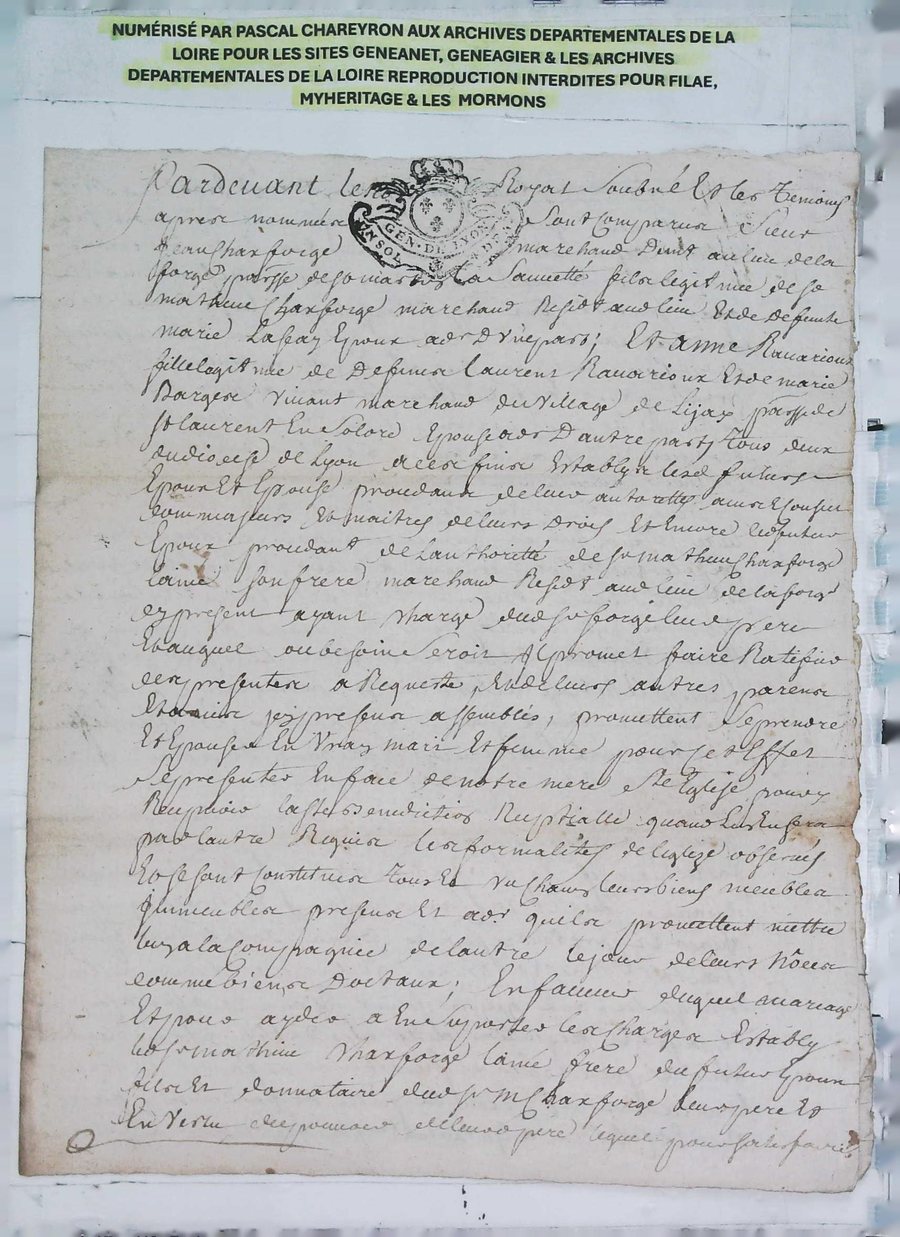 NUMÉRISÉ PAR PASCAL CHAREYRON AUX ARCHIVES DEPARTEMENTALES DE LA
LOIRE POUR LES SITES GENEANET, GENEAGIER & LES ARCHIVES
DEPARTEMENTALES DE LA LOIRE REPRODUCTION INTERDITES POUR FILAE,
MYHERITAGE & LES MORMONS
Pardevant le no Royal Soubné Et les Temoins
apres nommés Sont Comparus Sieur
Jean Charforge marchand Demt au lieu de la
forge parsse de st la Sauvetté fils legitime de sr
mathieu Charforge marchand Resid‍t aud lieu Et de Deffunte
marie Epoux adr D'Unepart; Et anne Ravarioux
fille legitme de Deffuns laurent Ravarioux Et de marie
Barges Vivant marchand du Village de Lijay parsse de
st laurent En Solore Epouse adr D'autre part; Tous deux
du diocese de Lyon a ces fins Establys lesd futurs
Epoux Et Epouse procedans de leur autorittés
comme majeurs Et maitres de leurs Droits Et Encore led futur
Epoux procedant de L'authoritté de sr mathieu Charforge
lainé son frere marchand Resid‍t aud lieu de la forge
ey present ayant Charge dud sr forge leur pere
Et auquel ou besoin Seroit Il promet faire Ratifier
ces presentes a Requeste, Et de leurs autres parens
Et amis icy presens assemblés, promettent Se prendre
Et Epouser En Vray mari Et femme pour cet Effet
Se presenter En face de notre mere Ste Eglise pour y
Recepvoir la ste Benediction Nuptialle quand L'un En sera
par l'autre Requis les formalités de l'eglize observés
Et se sont Constitués Tous Et Un Chauns leurs biens meubles
Immeubles presens Et adr quils promettent mettre
En la Compagnie de lautre le jour de leurs Nôces
comme biens Dottaux; En faveur duquel mariage
Et pour ayder a En Suporter les Charges Estably
led sr mathieu Charforge lainé frere du futur Epoux
fils Et donnataire dud sr M Charforge leur pere Et
En Vertu du pouvoir de leurd pere lequel pour satisfaire